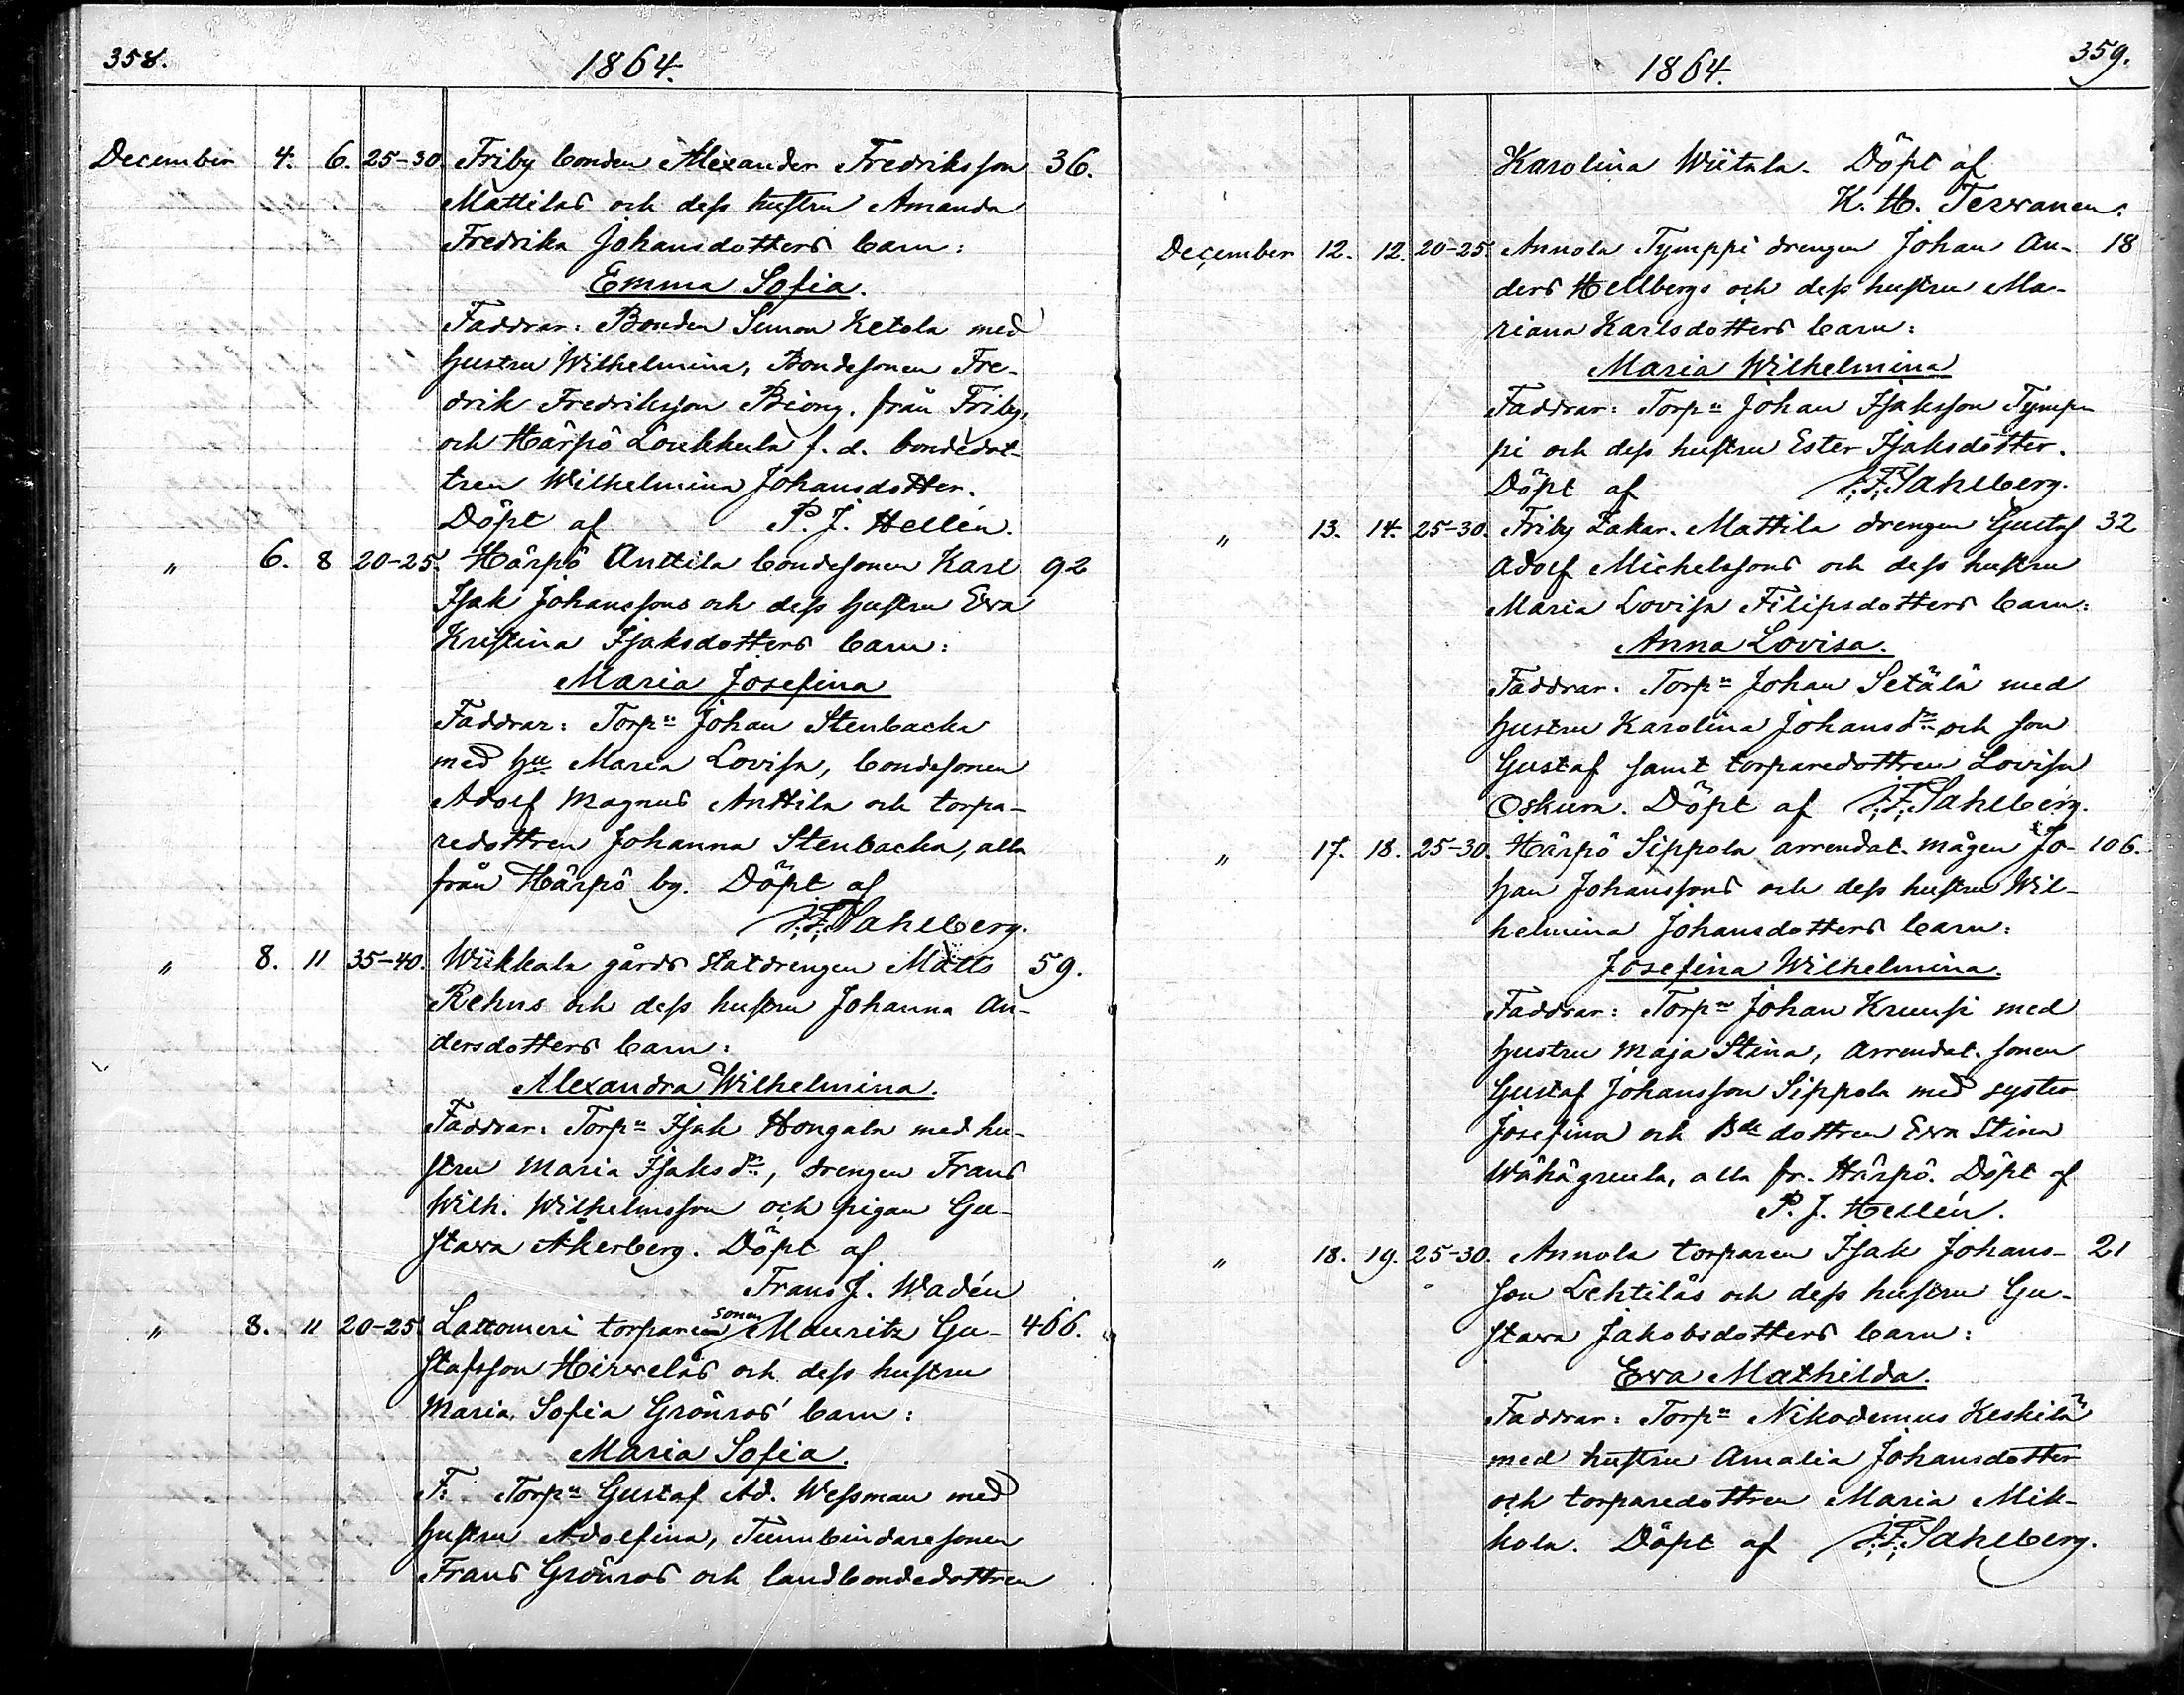 358.
1864.
December 4. 6. 25-30. Friby bonden Alexander Fredriksson 36.
Mattilas och dess hustru Amanda
Fredrika Johansdotters barn:
Emma Sofia.
Faddrar: Bonden Simon Ketola med
hustru Wilhelmina, Bondesonen Fre-
drik Fredriksson Biong. från Friby,
och Hårpö Loukkula f. d. bondedot-
tren Wilhelmina Johansdotter.
Döpt af P. J. Hellén.
" 6. 8 20-25. Hårpö Anttila bondesonen Karl 92
Isak Johanssons och dess hustru Eva
Kristina Isaksdotters barn:
Maria Josefina
Faddrar: Torpn Johan Stenbacka
med hu Maria Lovisa, bondesonen
Adolf Magnus Anttila och torpa-
redottren Johanna Stenbacka, alla
från Hårpö by. Döpt af
F. F. Sahlberg.
" 8. 11 35-40. Wiikkala gårds statdrengen Matts 59.
Rehns och dess hustru Johanna An-
dersdotters barn:
Alexandra Wilhelmina.
Faddrar: Torpn Isak Hongala med hu-
stru Maria Isaksdr, drengen Frans
Wilh. Wilhelmsson och pigan Gu-
stava Åkerberg. Döpt af
Frans J. Wadén
" 8. 11 20-25 Lattomeri torparesonen Mauritz Gu- 466.
stafsson Hirvelås och dess hustru
Maria Sofia Grönros' barn:
Maria Sofia.
F: Torpn Gustaf Ad. Wessman med
hustru Adolfina, Tunnbindaresonen
Frans Grönros och landbondedottren
1864.
359.
Karolina Wiitala. Döpt af
K. H. Terwanen.
December 12. 12. 20-25. Annola Tymppi drengen Johan An- 18
ders Hellbergs och dess hustru Ma-
riana Karlsdotters barn:
Maria Wilhelmina
Faddrar: Torpn Johan Isaksson Tymp-
pi och dess hustru Ester Isaksdotter.
Döpt af F. F. Sahlberg.
" 13. 14. 25-30. Friby Zakar. Mattila drengen Gustaf 32
Adolf Michelssons och dess hustru
Maria Lovisa Filipsdotters barn:
Anna Lovisa.
Faddrar: Torpn Johan Setälä med
hustru Karolina Johansdr och son
Gustaf samt torparedottren Lovisa
Oskura. Döpt af F. F. Sahlberg.
" 17. 18. 25-30. Hårpö Sippola arrendat. mågen Jo- 106.
han Johanssons och dess hustru Wil-
helmina Johansdotters barn:
Josefina Wilhelmina.
Faddrar: Torpn Johan Kruusi med
hustru Maja Stina, Arrendat. sonen
Gustaf Johansson Sippola med syster
Josefina och Bde dottren Eva Stina
Wähägreula, alla fr. Hårpö. Döpt af
P. J. Hellén.
" 18. 19. 25-30. Annola torparen Isak Johans- 21
son Lehtilås och dess hustru Gu-
stava Jakobsdotters barn:
Eva Mathilda.
Faddrar: Torpn Nikodemus Keskila
med hustru Amalia Johansdotter
och torparedottren Maria Mik-
kola. Döpt af F. F. Sahlberg.